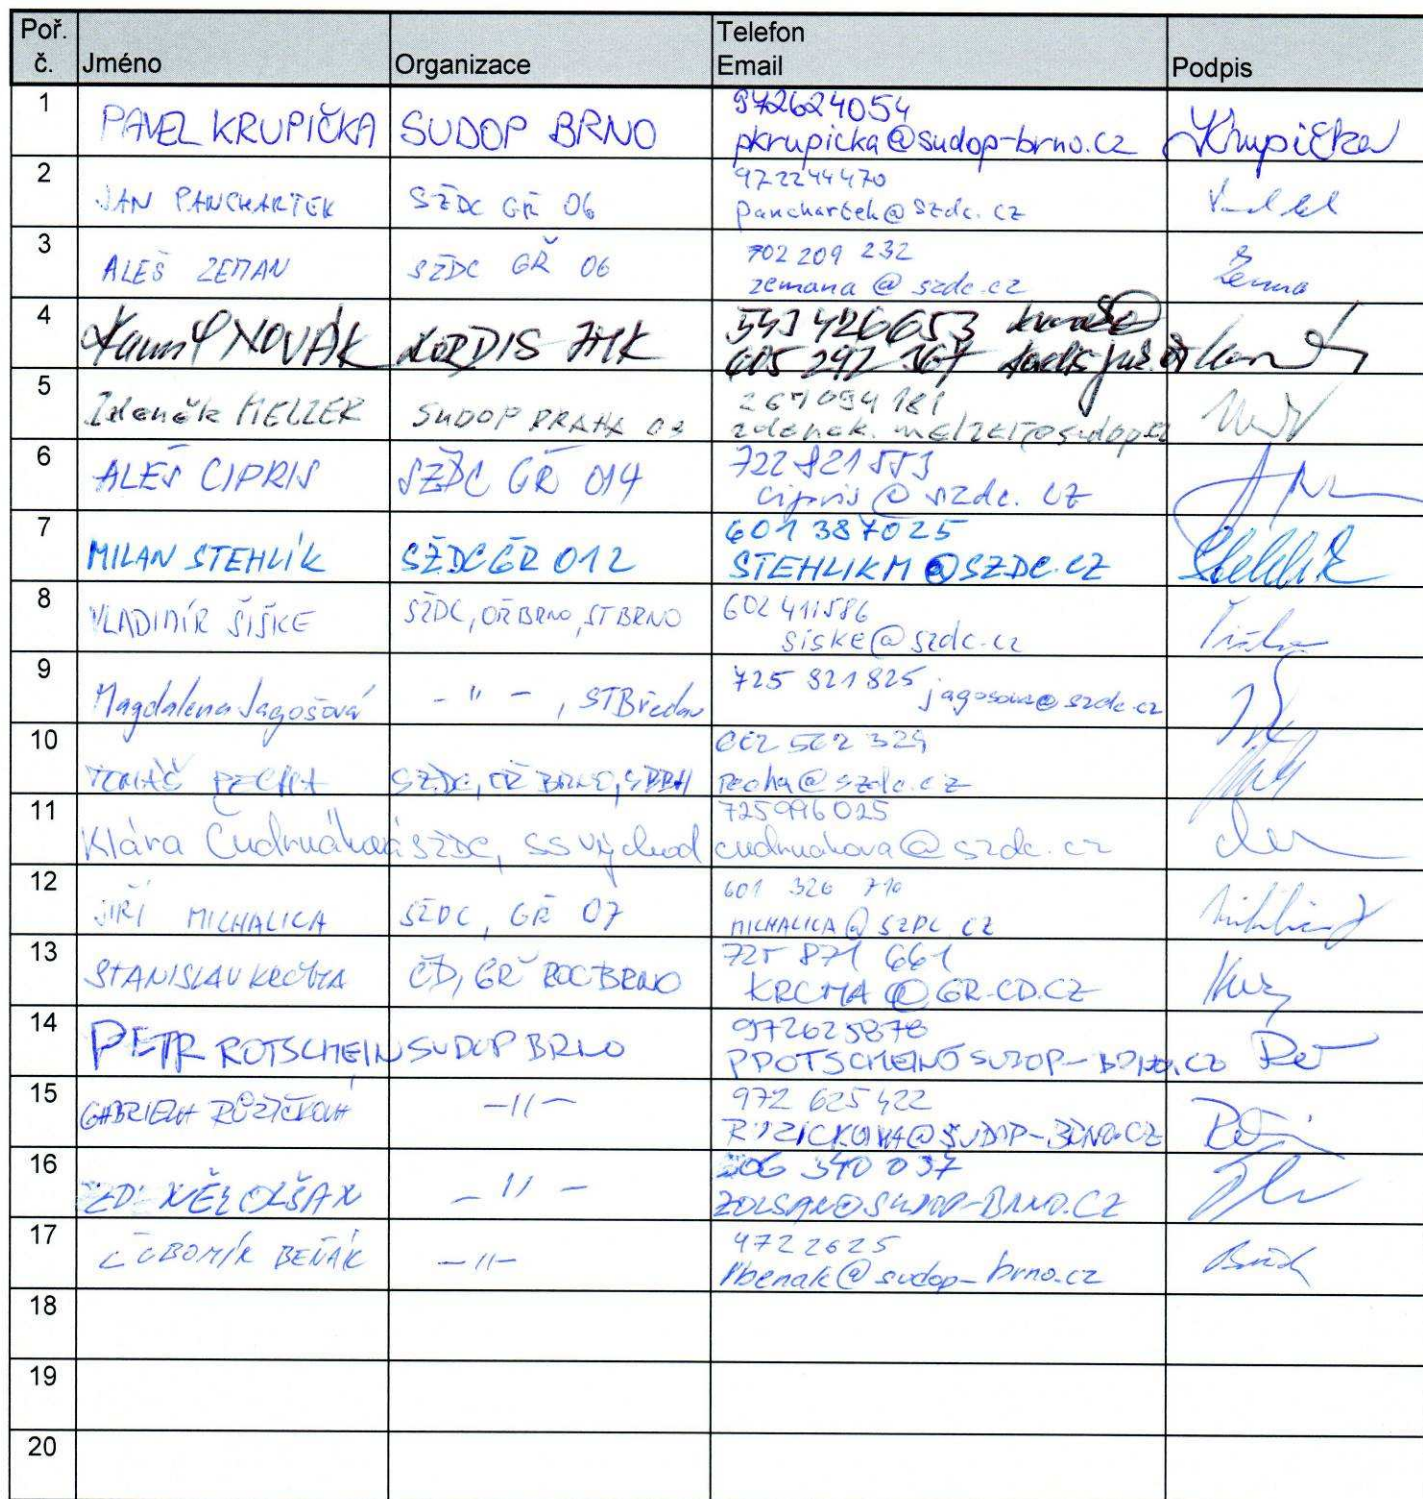 Poř. č. Jméno Organizace Telefon Email Podpis
1 PAVEL KRUPIČKA SUDOP BRNO 972624054
pkrupicka@sudop-brno.cz Krupička
2 JAN PANCHARTEK SŽDC GŘ 06 972244470
panchartek@szdc.cz
3 ALEŠ ZEMAN SŽDC GŘ 06 702 209 232
zemana@szdc.cz Zeman
4 NOVÁK KORDIS JMK 543426653
605 292 367
5 Zdeněk MELZER SUDOP PRAHA 267094181
6 ALEŠ CIPRIS SŽDC GŘ 014 722 821 553
cipris@szdc.cz
7 MILAN STEHLÍK SŽDC GŘ 012 601 387025
STEHLIKM@SZDC.CZ Stehlík
8 VLADIMÍR ŠIŠKE SŽDC, OŘ BRNO, ST BRNO 602 411586
SISKE@szdc.cz
9 Magdalena Jagošová - " - , ST Břeclav 725 821 825 jagosova@szdc.cz
10 TOMÁŠ PECHA SŽDC, OŘ BRNO, 602 502 329
pecha@szdc.cz
11 Klára SŽDC, SS východ
@szdc.cz
12 JIŘÍ MICHALICA SŽDC, GŘ 07 601 326 710
MICHALICA@SZDC.CZ
13 STANISLAV KRČMA ČD, GŘ ROC BRNO 725 871 661
KRCMA@GR.CD.CZ
14 PETR ROTSCHEIN SUDOP BRNO 972625878
15 GABRIELA RŮŽIČKOVÁ -11- 972 625 422
RUZICKOVA@SUDOP-BRNO.CZ
16 ZDENĚK OLŠAN - 11 - 606 340 037
ZOLSAN@SUDOP-BRNO.CZ
17 ĽUBOMÍR BEŇÁK -11- 9722625
lbenak@sudop-brno.cz
18
19
20